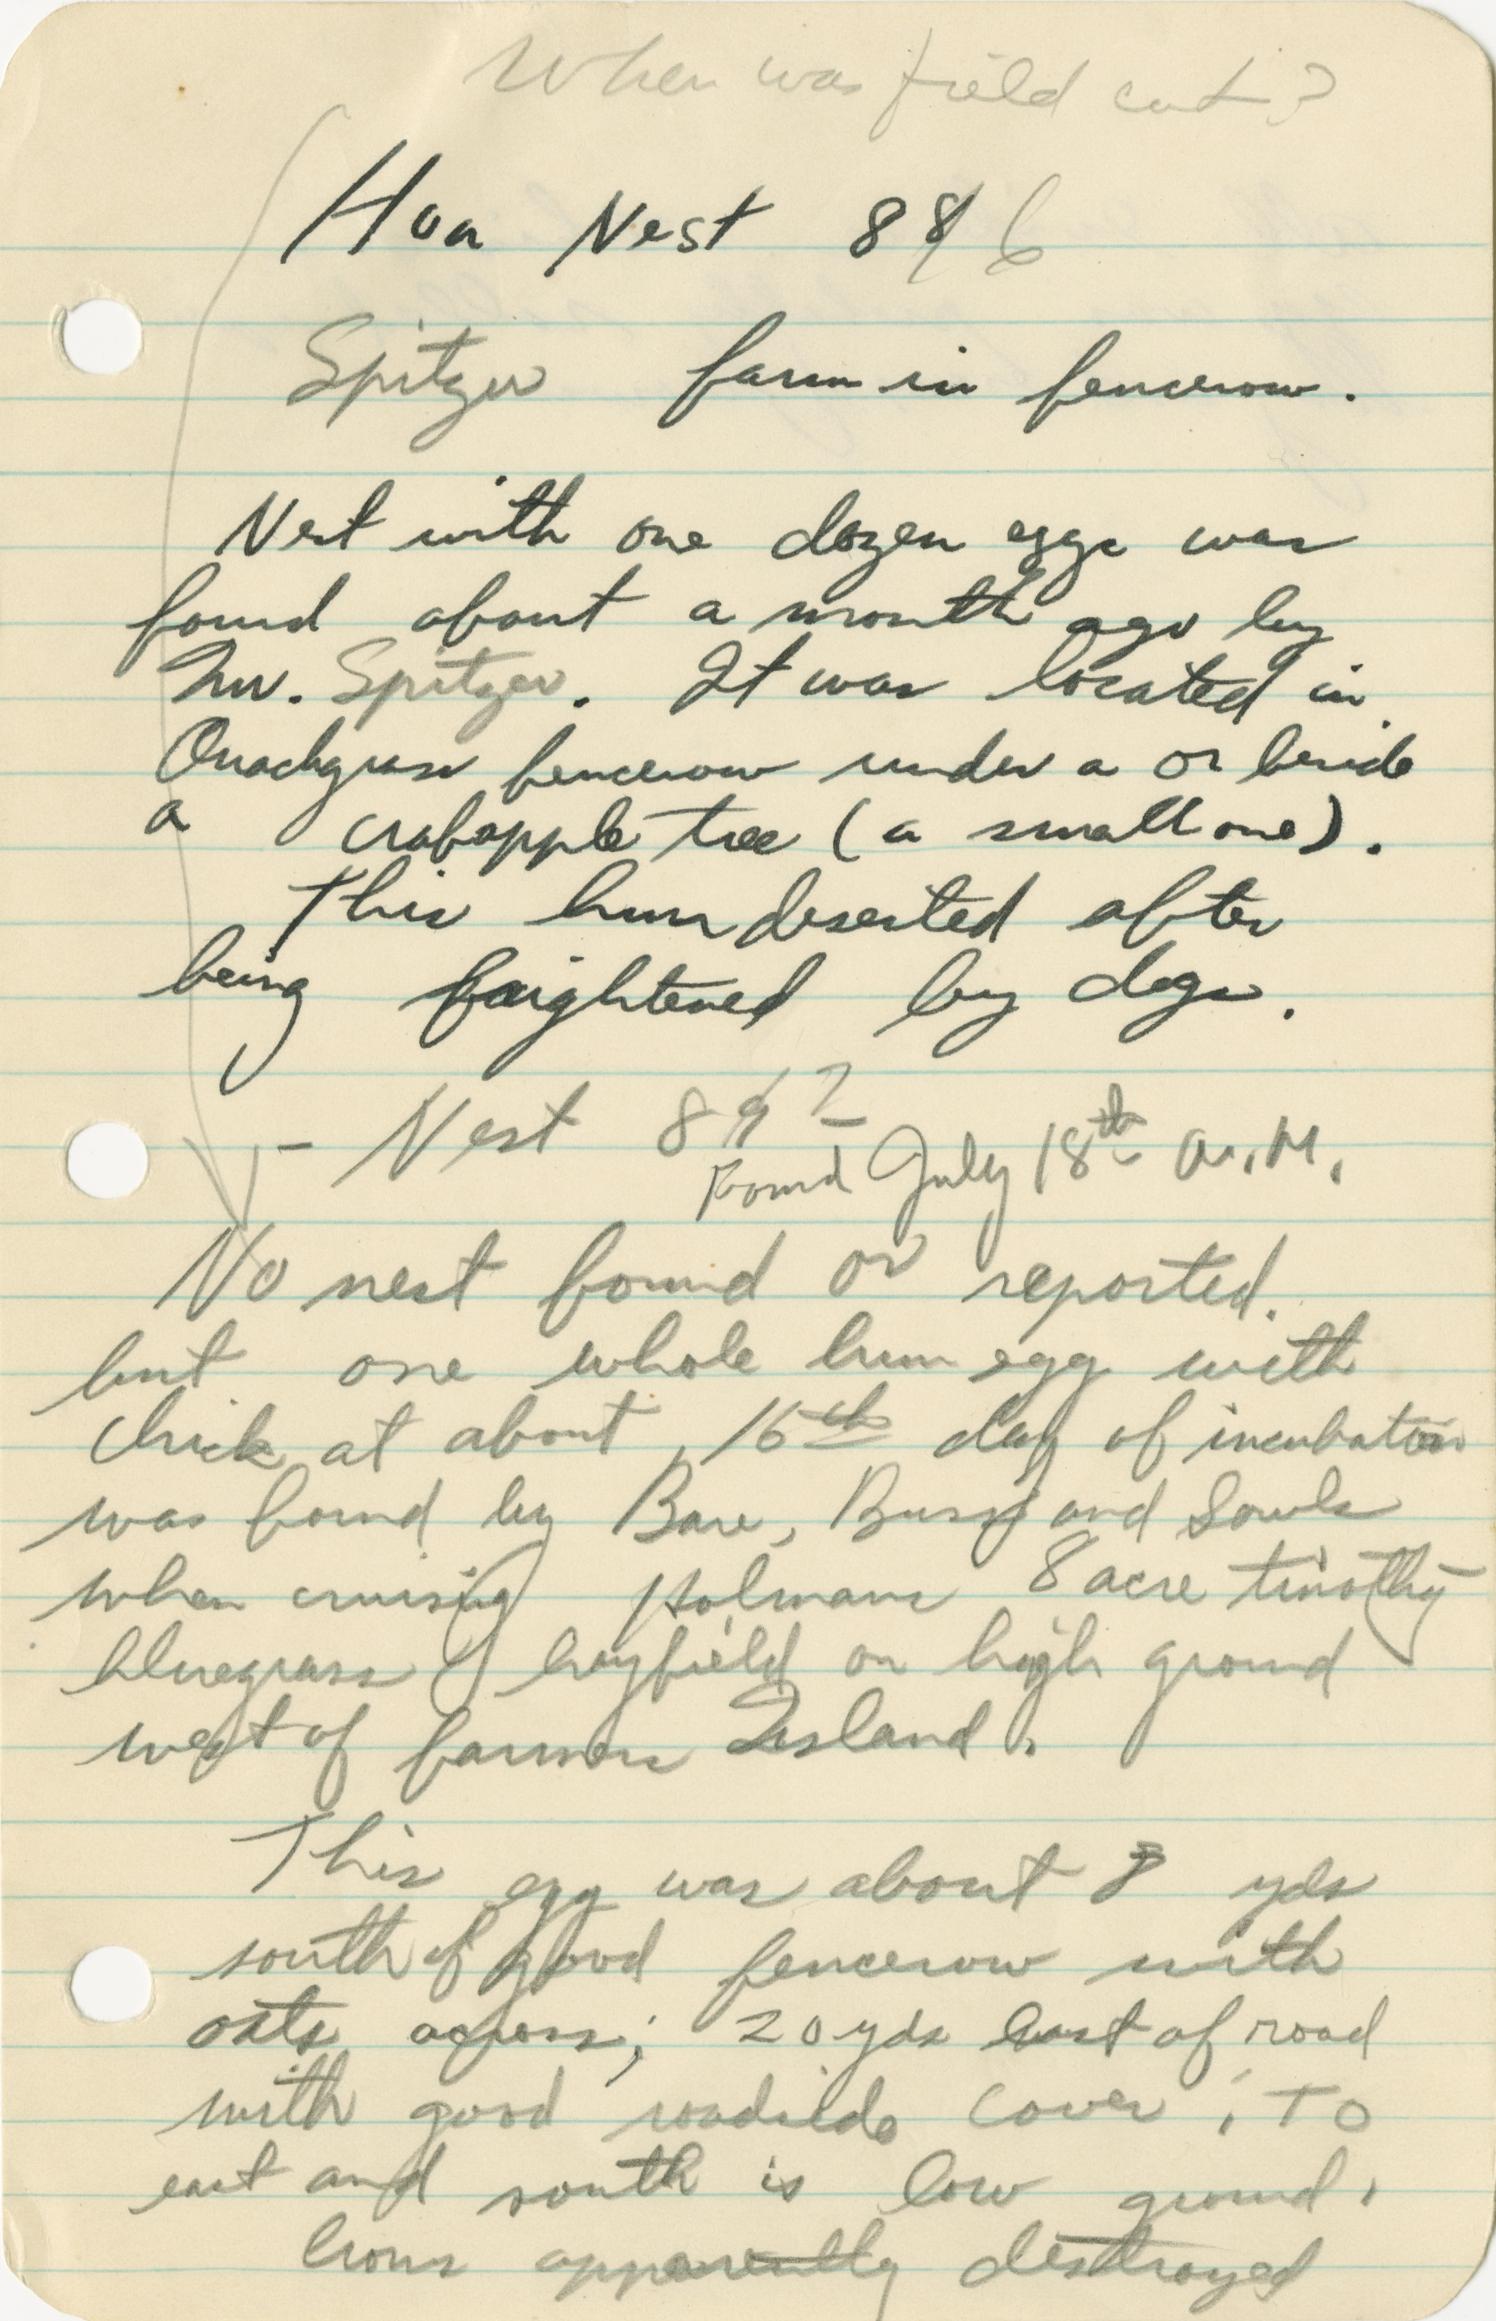 When was field cut?
Hun Nest 88 6
Spitzer farm in fencerow.
Nest with one dozen eggs was
found about a month ago by
Mr. Spitzer. It was located in
Quackgrass fencerow under a or beside
a crabapple tree (a small one).
This hun deserted after
being frightened by dogs.
- Nest 89 7
Found July 18th A.M.
No nest found or reported.
but one whole hun egg with
chick at about 16th day of incubation
was found by Bare, Buss and Sowls
when cruising Holmans 8 acre timothy
bluegrass hayfield on high ground
west of farmers Island.
This egg was about 8 yds
south of good fencerow with
oats across; 20 yds east of road
with good roadside cover; To
east and south is low ground.
apparently destroyed